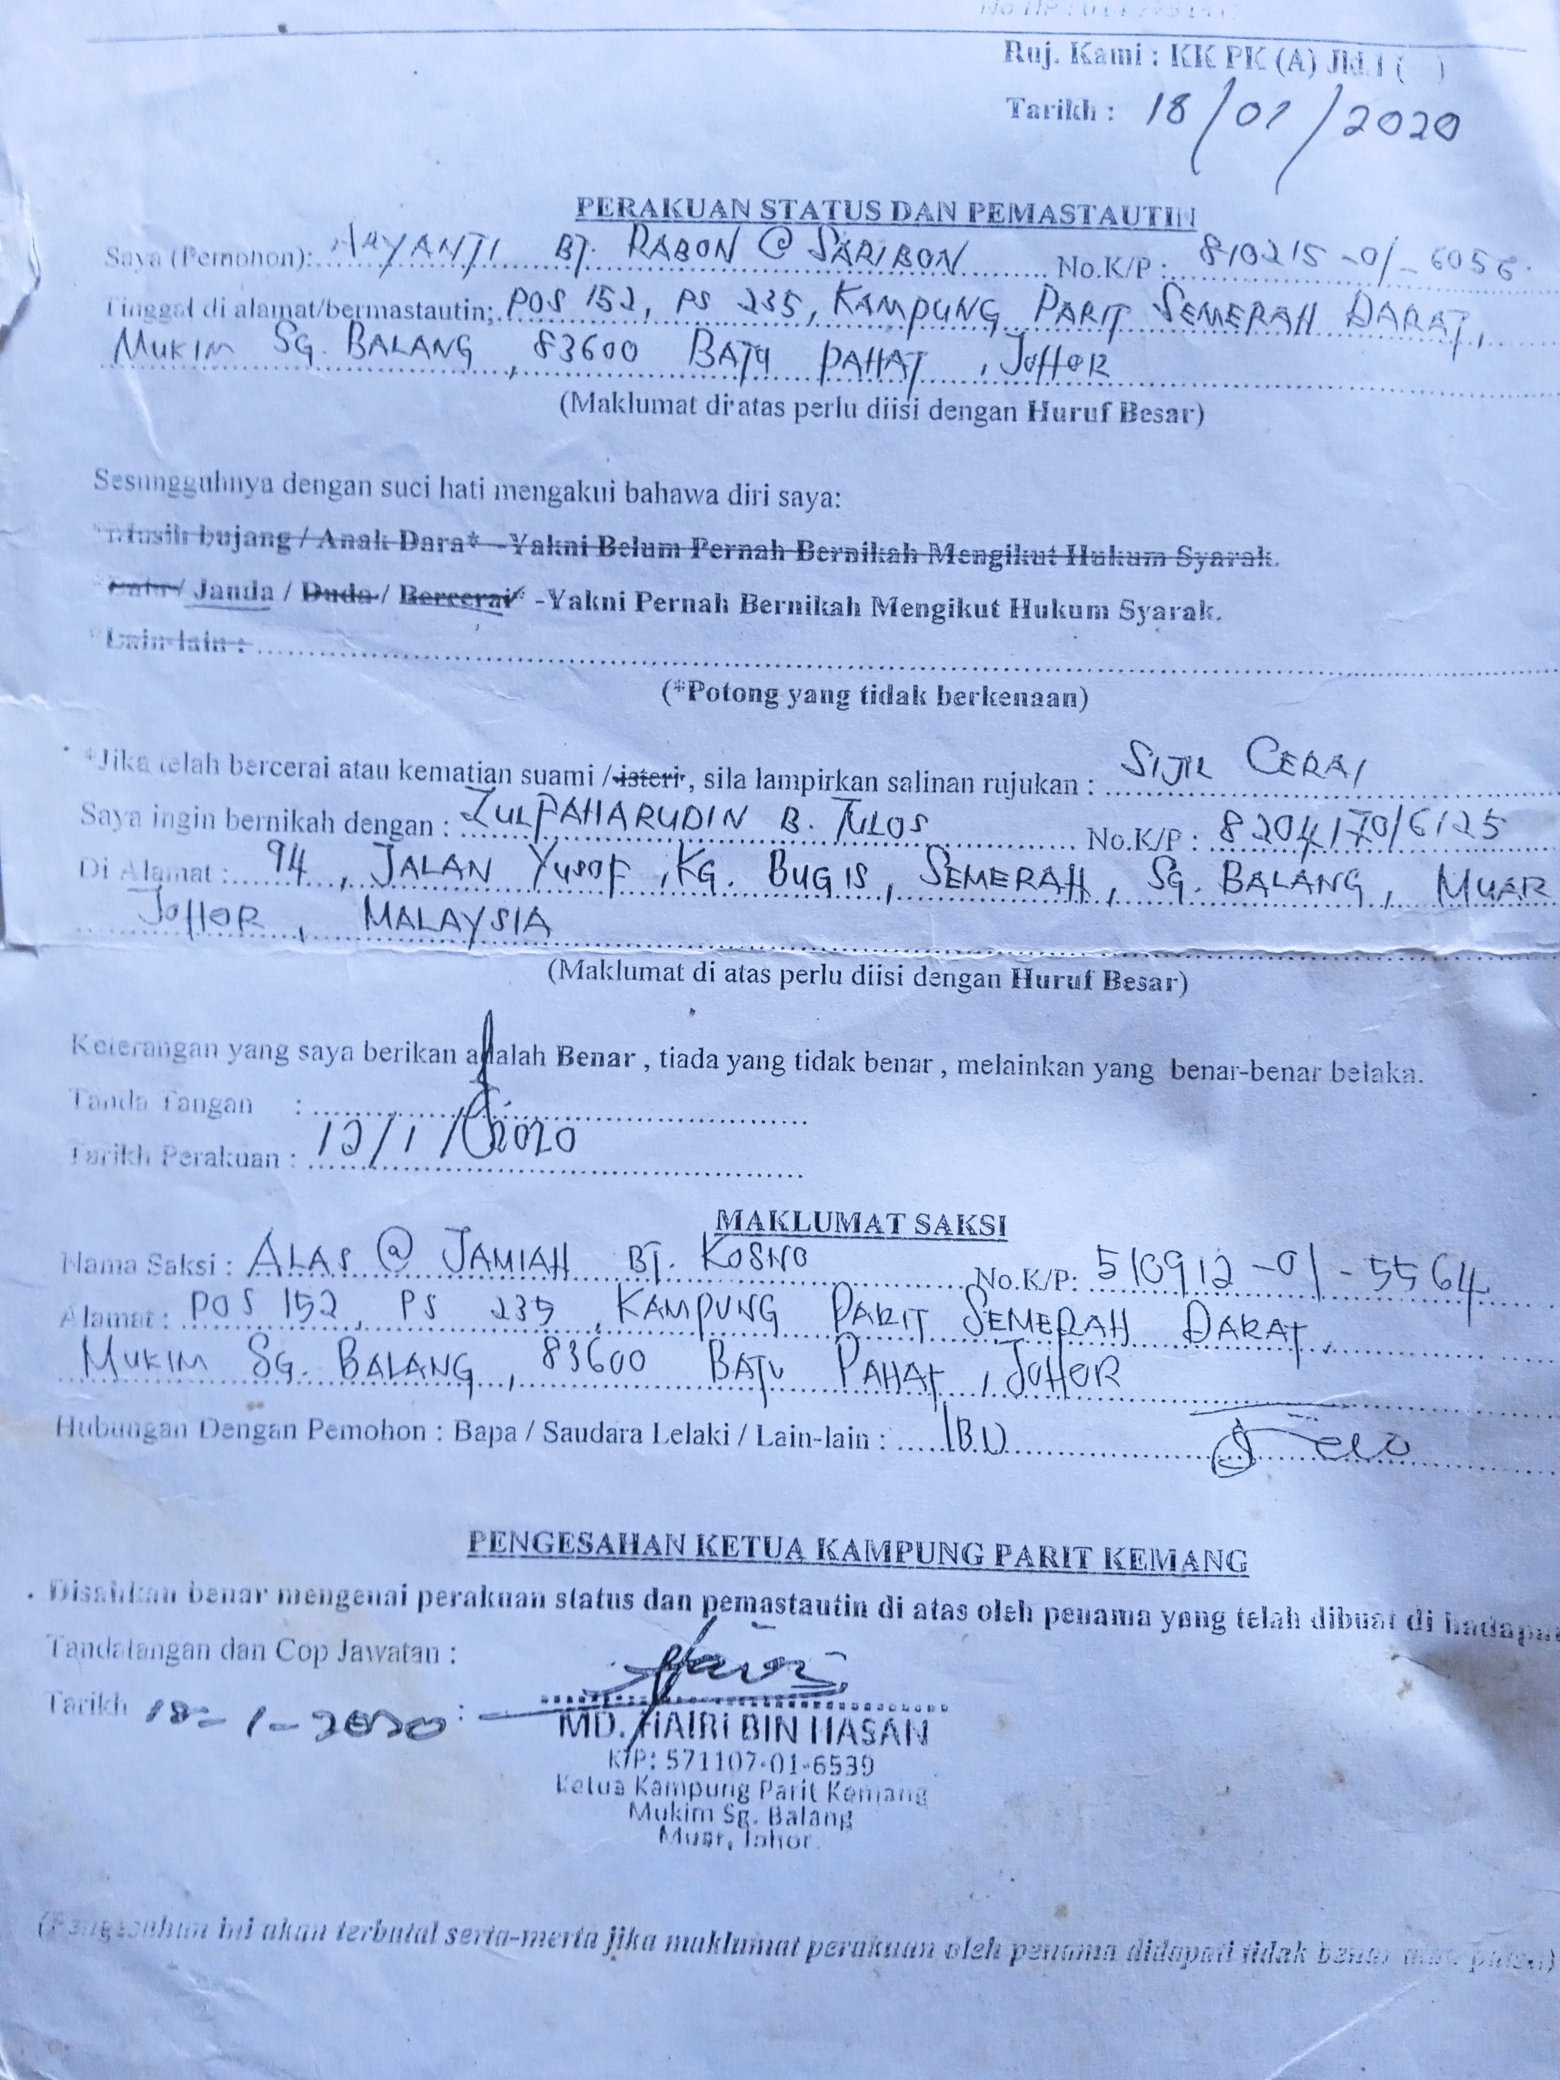 Ruj. Kami : KK PK (A) Jld.1 ( )
Tarikh : 18/01/2020
PERAKUAN STATUS DAN PEMASTAUTIN
Saya (Pemohon): BT. RABON @ SARIBON No.K/P : 810215-01-6056
Tinggal di alamat/bermastautin; POS 152, PS 235, KAMPUNG PARIT SEMERAH DARAT,
MUKIM SG. BALANG, 83600 BATU PAHAT, JOHOR
(Maklumat di atas perlu diisi dengan Huruf Besar)
Sesungguhnya dengan suci hati mengakui bahawa diri saya:
*Masih bujang / Anak Dara* -Yakni Belum Pernah Bernikah Mengikut Hukum Syarak.
/ Janda / Duda / Bercerai* -Yakni Pernah Bernikah Mengikut Hukum Syarak.
*Lain-lain :
(*Potong yang tidak berkenaan)
*Jika telah bercerai atau kematian suami / isteri, sila lampirkan salinan rujukan : SIJIL CERAI
Saya ingin bernikah dengan : ZULPAHARUDIN B. TULOS No.K/P : 820417016125
Di Alamat : 94, JALAN YUSOF, KG. BUGIS, SEMERAH, SG. BALANG, MUAR
JOHOR, MALAYSIA
(Maklumat di atas perlu diisi dengan Huruf Besar)
Keterangan yang saya berikan adalah Benar , tiada yang tidak benar , melainkan yang benar-benar belaka.
Tanda Tangan :
Tarikh Perakuan : 12/1/2020
MAKLUMAT SAKSI
Nama Saksi : ALAS @ JAMIAH BT. KOSNO No.K/P: 510912-01-5564
Alamat : POS 152, PS 235, KAMPUNG PARIT SEMERAH DARAT,
MUKIM SG. BALANG, 83600 BATU PAHAT, JOHOR
Hubungan Dengan Pemohon : Bapa / Saudara Lelaki / Lain-lain : IBU
PENGESAHAN KETUA KAMPUNG PARIT KEMANG
. Disahkan benar mengenai perakuan status dan pemastautin di atas oleh penama yang telah dibuat di
Tandatangan dan Cop Jawatan :
Tarikh 18-1-2020 :
MD. HAIRI BIN HASAN
K/P: 571107-01-6539
Ketua Kampung Parit Kemang
Mukim Sg. Balang
Muar, Johor.
(Pengesahan ini akan terbatal serta-merta jika maklumat perakuan oleh penama didapati tidak benar atau palsu)